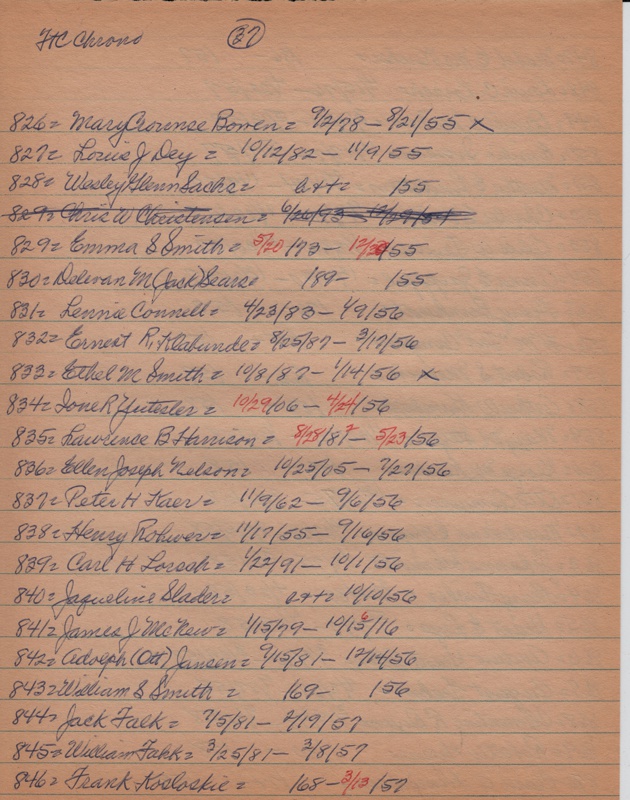 HC Chrono 37
826= Mary Crounse Bowen = 9/2/78 - 8/21/55 x
827= Louis J Dey = 10/12/82 - 11/9/55
828= Wesley Glenn Sachs = a++= /55
829= Chris W Christensen =
829= Emma S Smith = 5/20/73 - 12/ /55
830= Delevan M (Jack) Sears /89- /55
831= Lennie Connell = 4/23/83 - 1/9/56
832= Ernest R, Klabunde = 8/25/87 - 3/17/56
833= Ethel M Smith = 10/8/87 - 1/14/56 x
834= Ione R = 10/29/06 - 4/24/56
835= Lawrense B Harrison = 8/28/87 - 5/23/56
836= Ellen Joseph Nelson = 10/25/05 - 7/27/56
837= Peter H Kaer = 11/9/62 - 9/6/56
838= Henry Rohwer = 11/17/55 - 9/16/56
839= Carl H Lorsch = 1/22/91 - 10/1/56
840= Jaqueline Slader = a++= 10/10/56
841= James J McKew = 1/15/79 - 10/15/16
842= Adolph (Ott) Jansen = 9/15/81 - 12/14/56
843= William S Smith = 169- 156
844= Jack Falk = 7/5/81 - 2/19/57
845= William Fakk = 3/25/81 - 3/8/57
846= Frank Kosloskie = 168 - 3/13/57